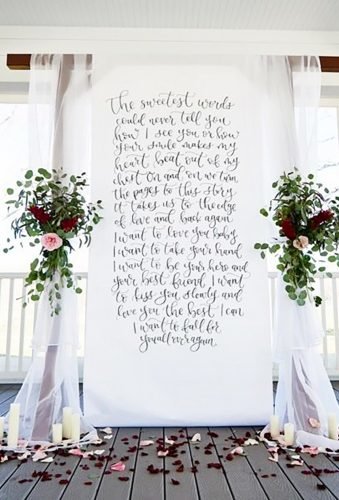 The sweetest words
could never tell you
how I see you or how
your smile makes my
heart beat out of my
chest On and on we turn
the pages to this story
it takes us to the edge
of love and back again
I want to love you baby
I want to take your hand
I want to be your hero and
your best friend I want
to kiss you slowly and
love you the best I can
I want to fall for
you all over again